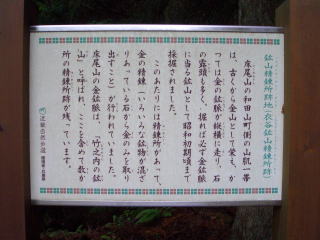 鉱山精錬所跡地(衣谷鉱山精錬所跡)
床尾山の和田山町側の山肌一帯
は、古くから金山として栄え、か
つては金の鉱脈が縦横に走り、石
の露頭も多く、掘れば必ず金鉱脈
に当る鉱山として昭和初期頃まで
採掘されました。
このあたりには精錬所があって、
金の精錬(いろいろな鉱物が混ざ
りあっている石から金のみを取り
出すこと)が行われていました。
床尾山の金鉱脈は、「竹之内の鉱
山」と呼ばれ、ここを含めて数か
所の精錬所跡が残っています。
近畿自然歩道
環境省・兵庫県